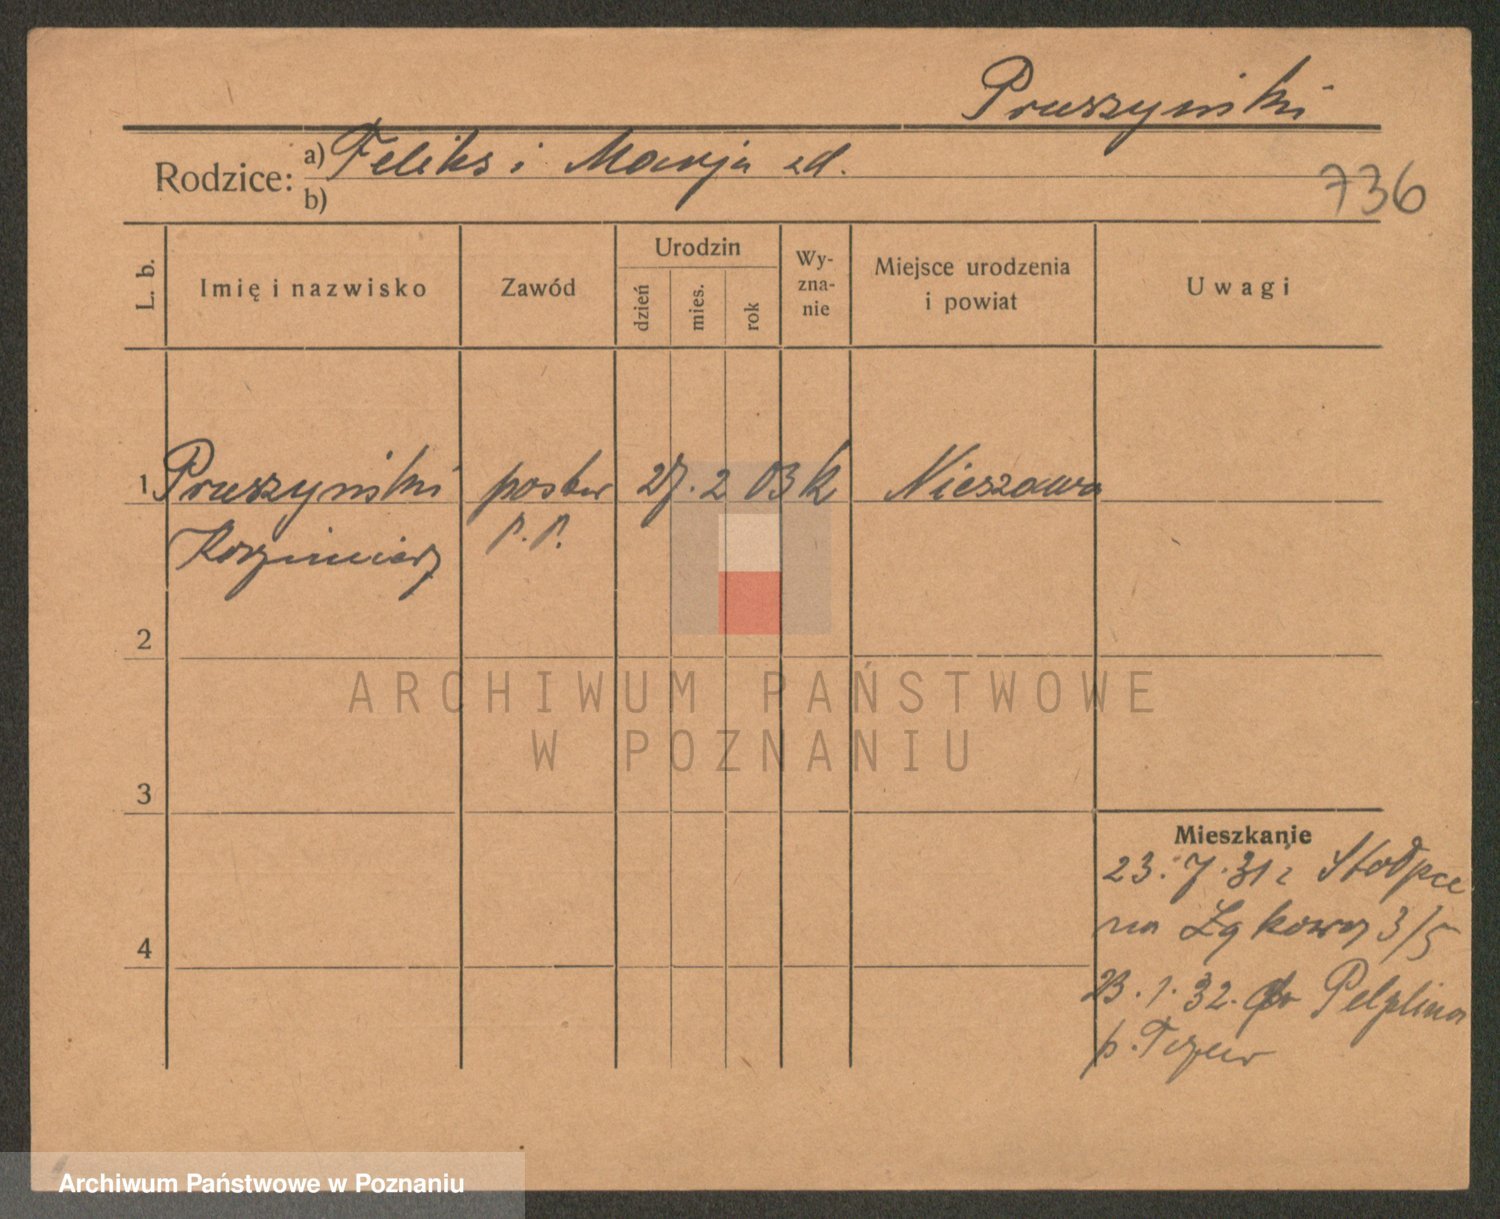 Pruszyński
Rodzice: a) Feliks i Marja zd.
b)
736
L. b.
Imię i nazwisko
Zawód
Urodzin
dzień
mies.
rok
Wy-
zna-
nie
Miejsce urodzenia
i powiat
Uwagi
1 Pruszyński poster 27. 2 03 k Nieszawa
Kazimierz P. P.
2
ARCHIWUM PAŃSTWOWE
W POZNANIU
3
Mieszkanie
23. 7. 31 z Stołpce
na Łąkowa 3/5
4
23. 1. 32. do Pelplina
p. Tczew
Archiwum Państwowe w Poznaniu